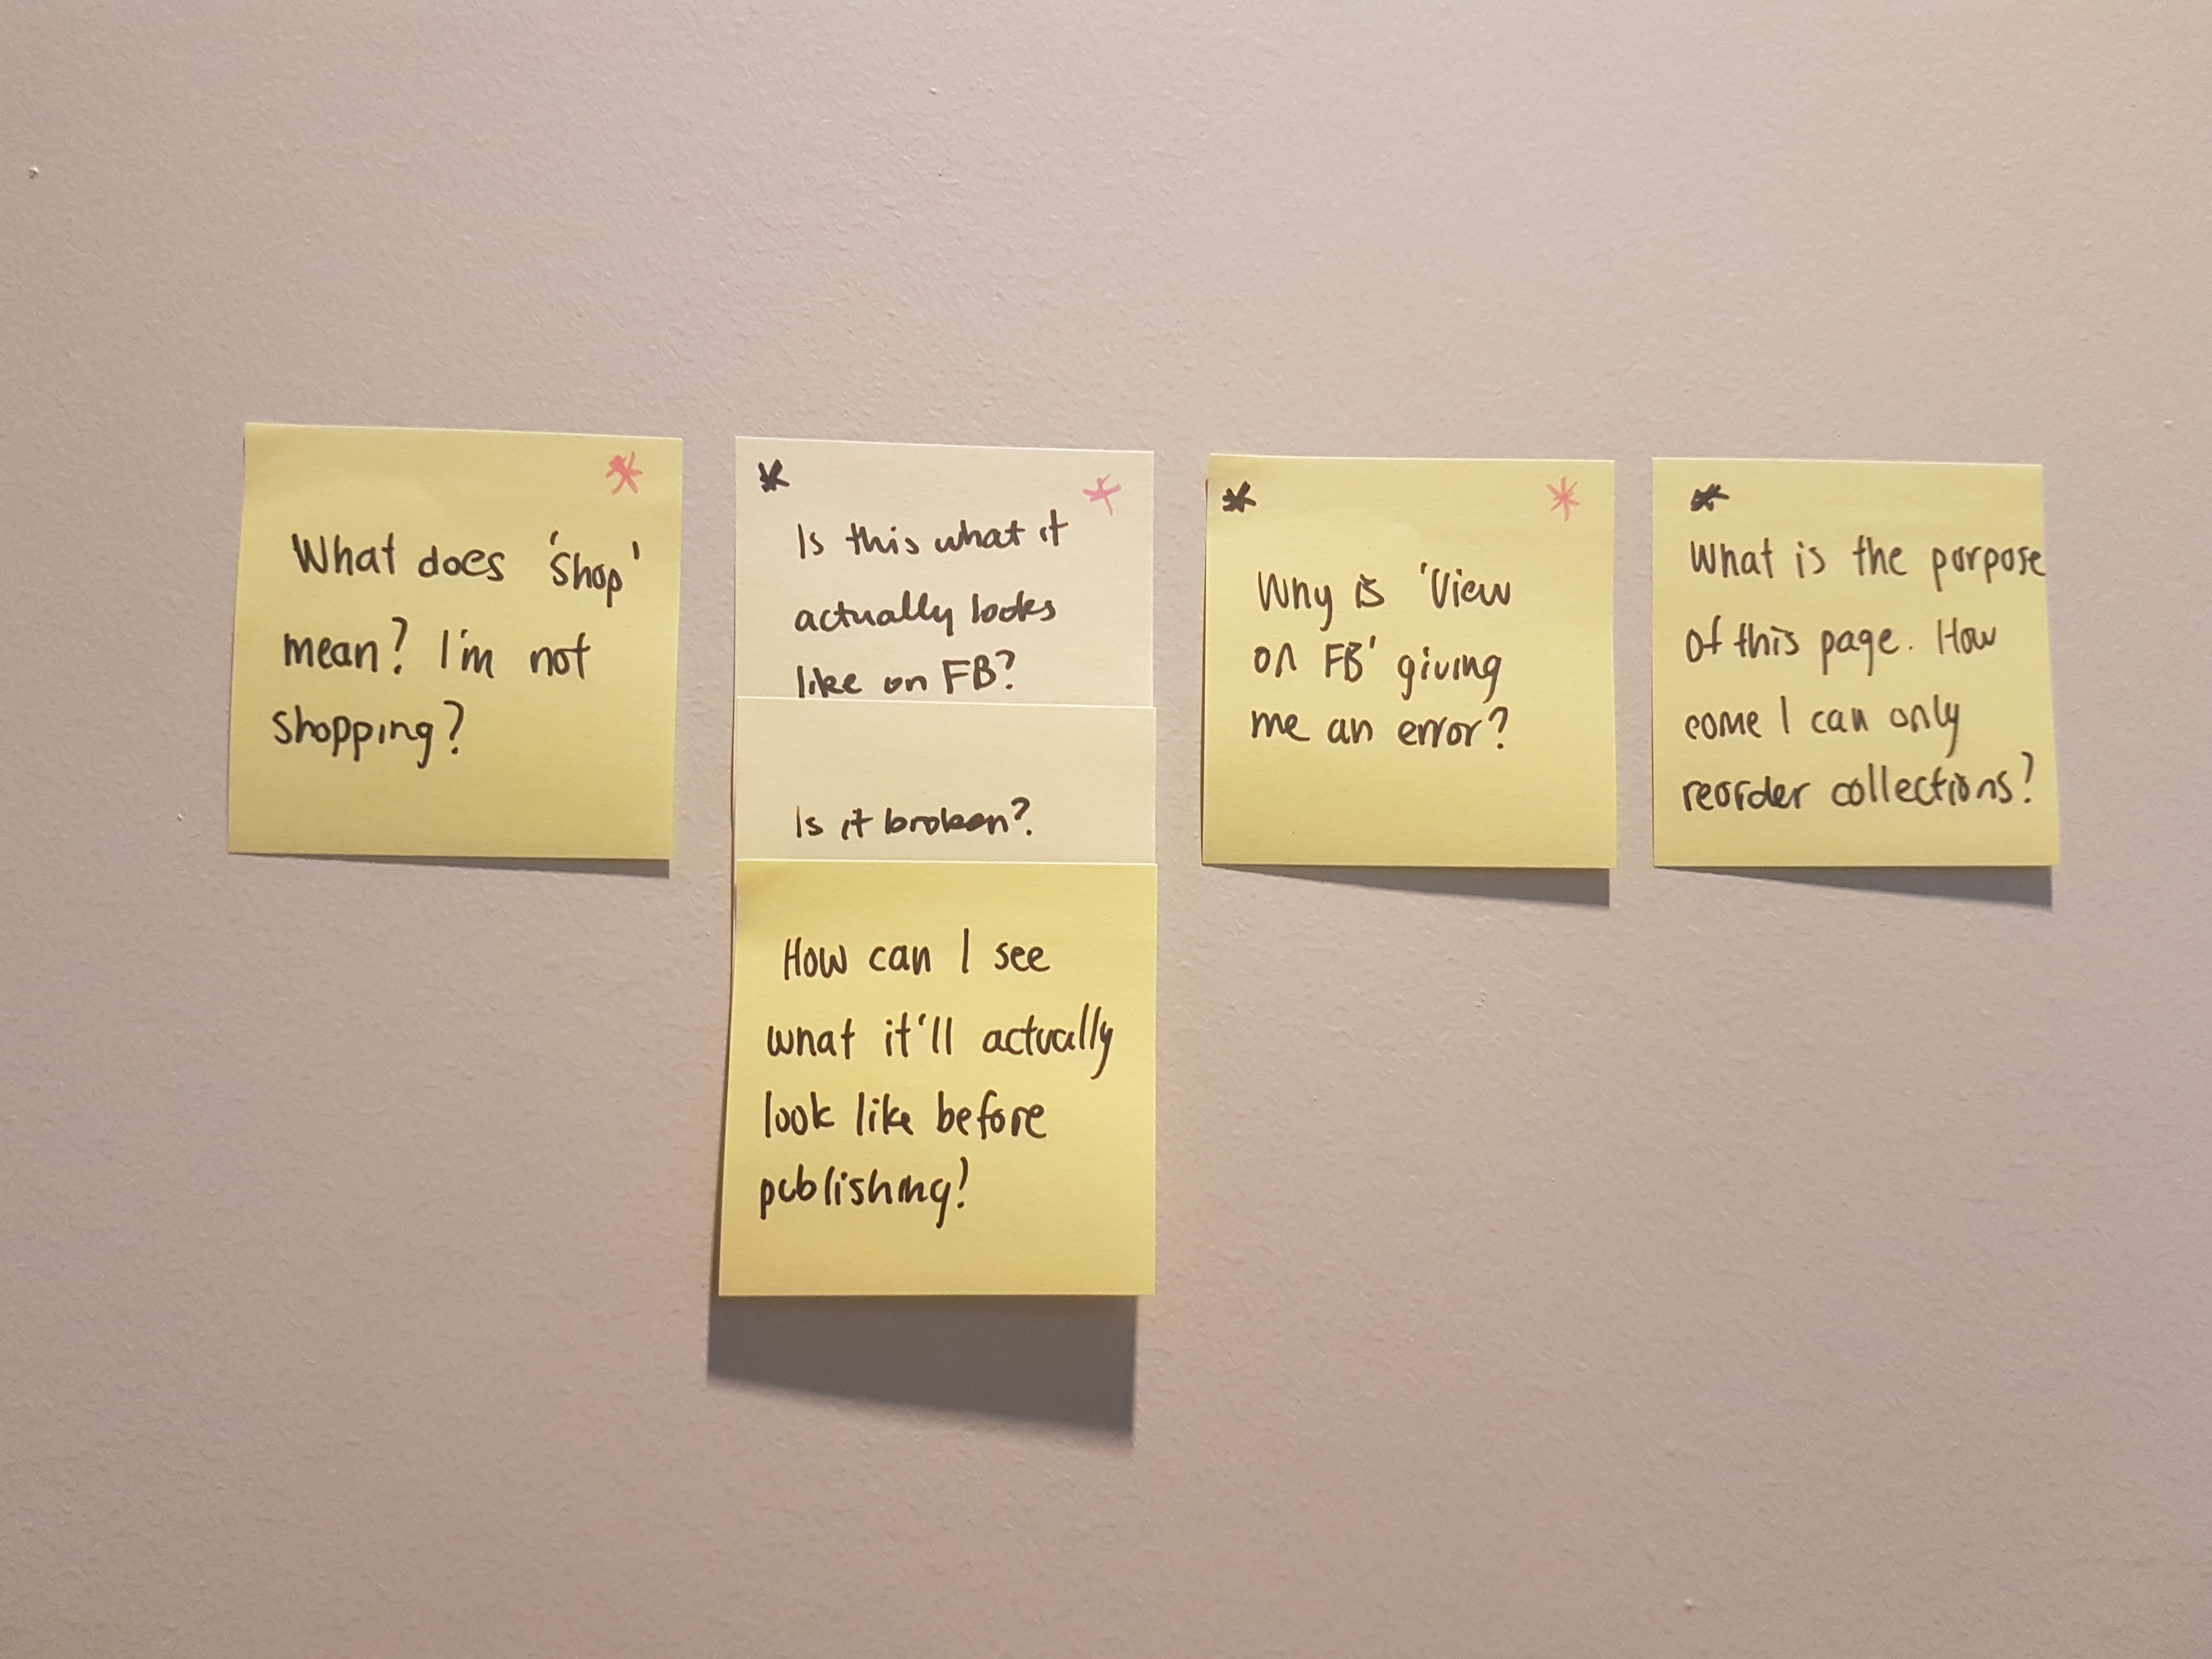 What does 'shop'
mean? I'm not
shopping?
Is this what it
actually looks
like on FB?
Is it broken?
How can I see
what it'll actually
look like before
publishing?
Why is 'View
on FB' giving
me an error?
What is the purpose
of this page. How
come I can only
reorder collections?